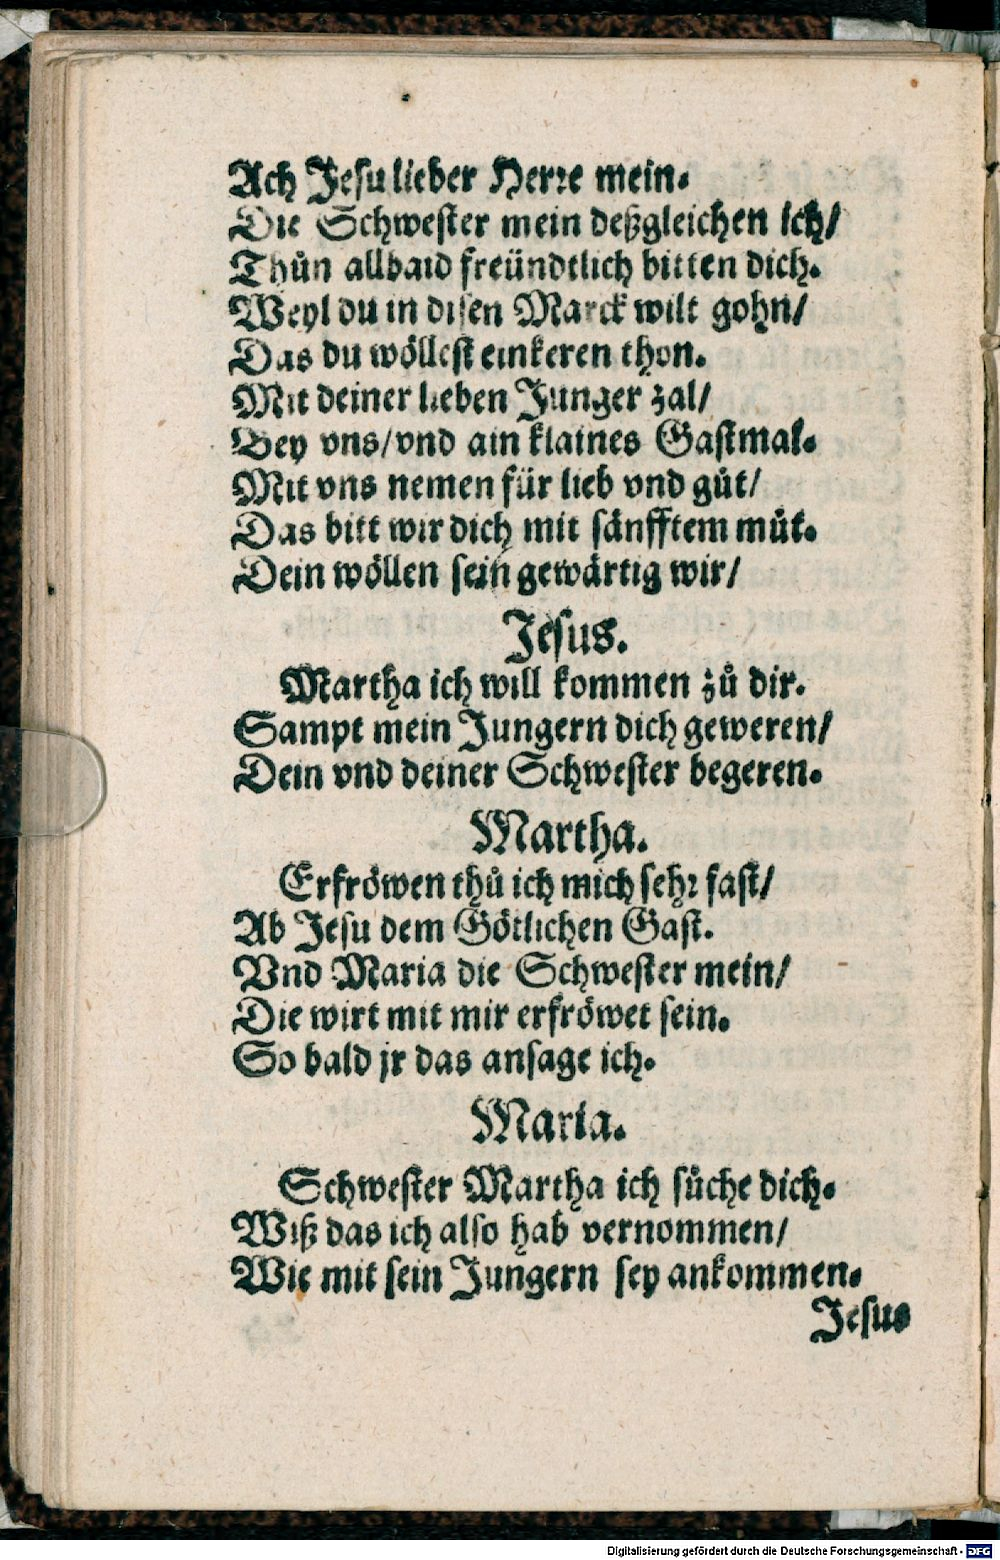 Ach Jesu lieber Herre mein.
Die Schwester mein deßgleichen ich/
Thůn allbaid freündtlich bitten dich.
Weyl du in disen Marck wilt gohn/
Das du wöllest einkeren thon.
Mit deiner lieben Junger zal/
Bey vns/vnd ain klaines Gastmal.
Mit vns nemen für lieb vnd gůt/
Das bitt wir dich mit sänfftem můt.
Dein wöllen sein gewärtig wir/
Jesus.
Martha ich will kommen zů dir.
Sampt mein Jungern dich geweren/
Dein vnd deiner Schwester begeren.
Martha.
Erfröwen thů ich mich sehr fast/
Ab Jesu dem Götlichen Gast.
Vnd Maria die Schwester mein/
Die wirt mit mir erfröwet sein.
So bald jr das ansage ich.
Maria.
Schwester Martha ich sůche dich.
Wiß das ich also hab vernommen/
Wie mit sein Jungern sey ankommen.
Jesus
Digitalisierung gefördert durch die Deutsche Forschungsgemeinschaft - DFG